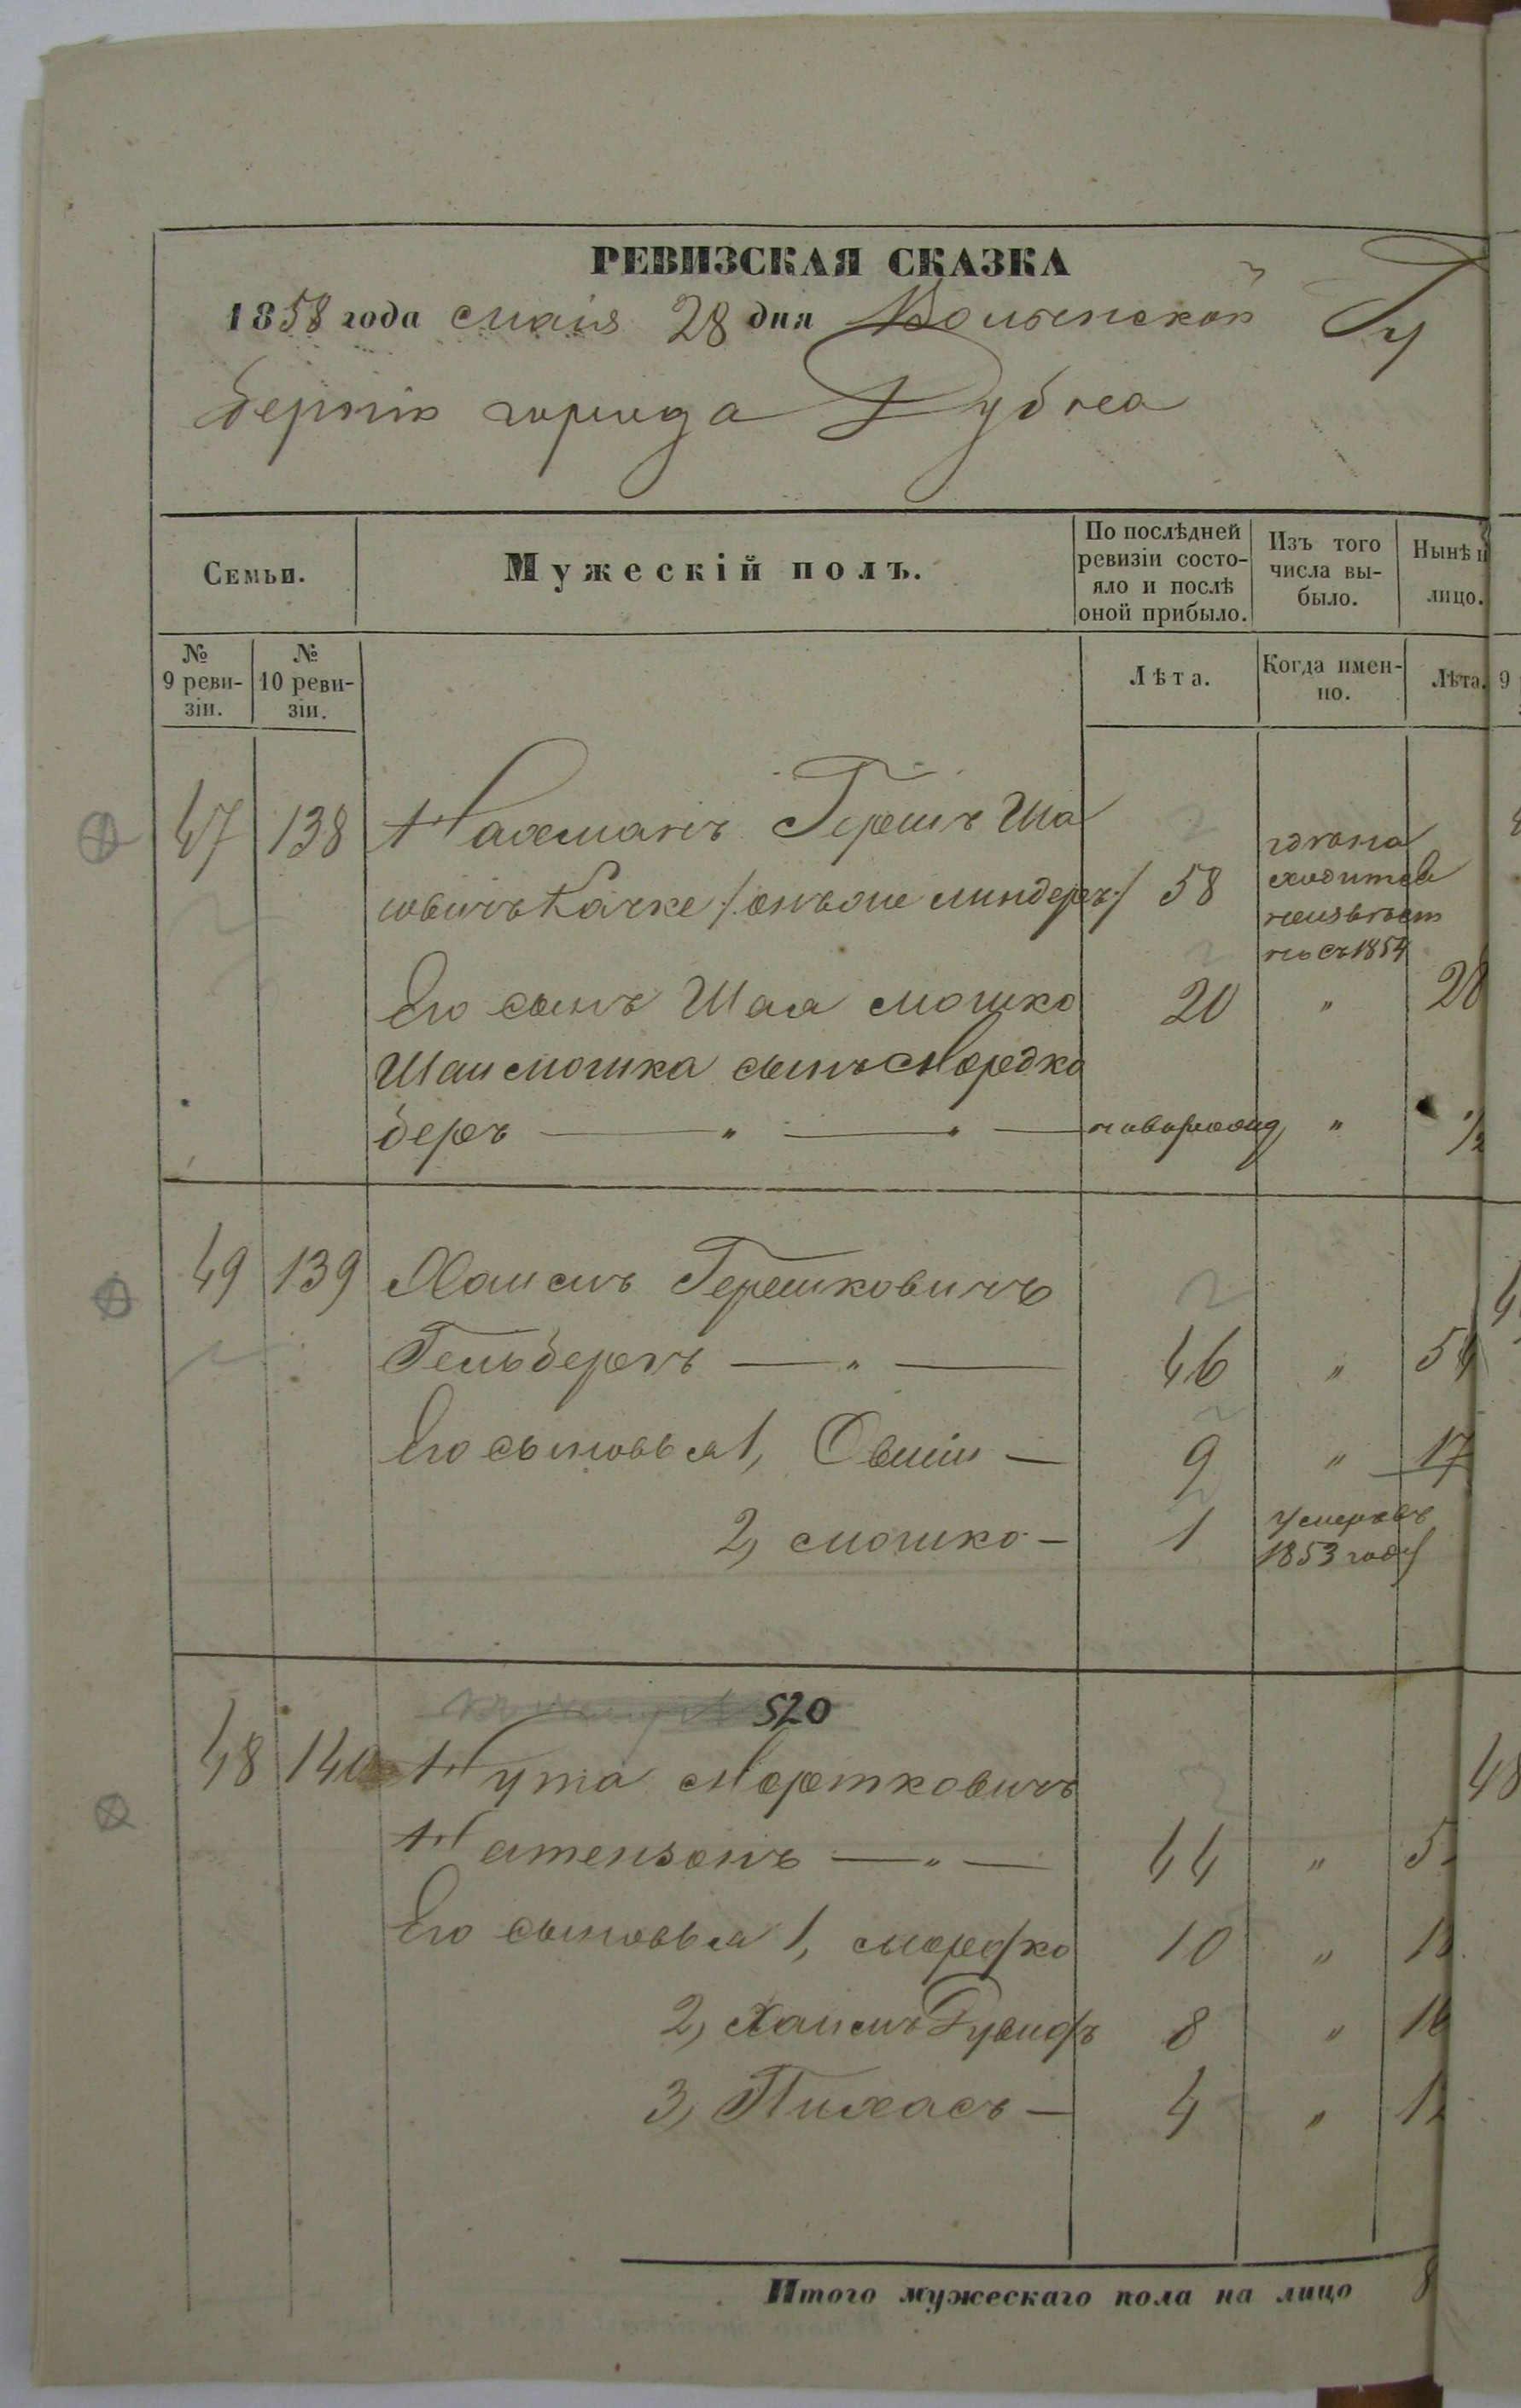 РЕВИЗСКАЯ СКАЗКА
1858 года маія 28 дня Волынской Гу
берніи города Дубна
Семьи.
Мужескій полъ.
По послѣдней ревизіи состо-
яло и послѣ
оной прибыло.
Изъ того
числа вы-
было.
Нынѣ н
лицо.
№
9 реви-
зіи.
№
10 реви-
зіи.
Лѣта.
Когда имен-
но.
Лѣта.
9
47 138 Нахманъ Гершъ Ша
іовичъ Качке /:онъ же линдеръ:/ 58
гдѣ на
ходится
неизвѣст
но съ 1854
Его сынъ Шая мошко 20 " 28
Шаи мошка сынъ Мордко
беръ — " — " — новорожд " 1/2
49 139 Хаимъ Гершковичъ
Гельберхъ — " — 46 " 54
Его сыновья 1, Овшій — 9 " 17
2, мошко — 1 умеръ въ
1853 году
520
48 140 Нута Мортковичъ 48
Натензонъ — " — 44 " 5
Его сыновья 1, мордко 10 " 18
2, Хаимъ Дувидъ 8 " 16
3, Пихасъ — 4 " 1
Итого мужескаго пола на лицо 8